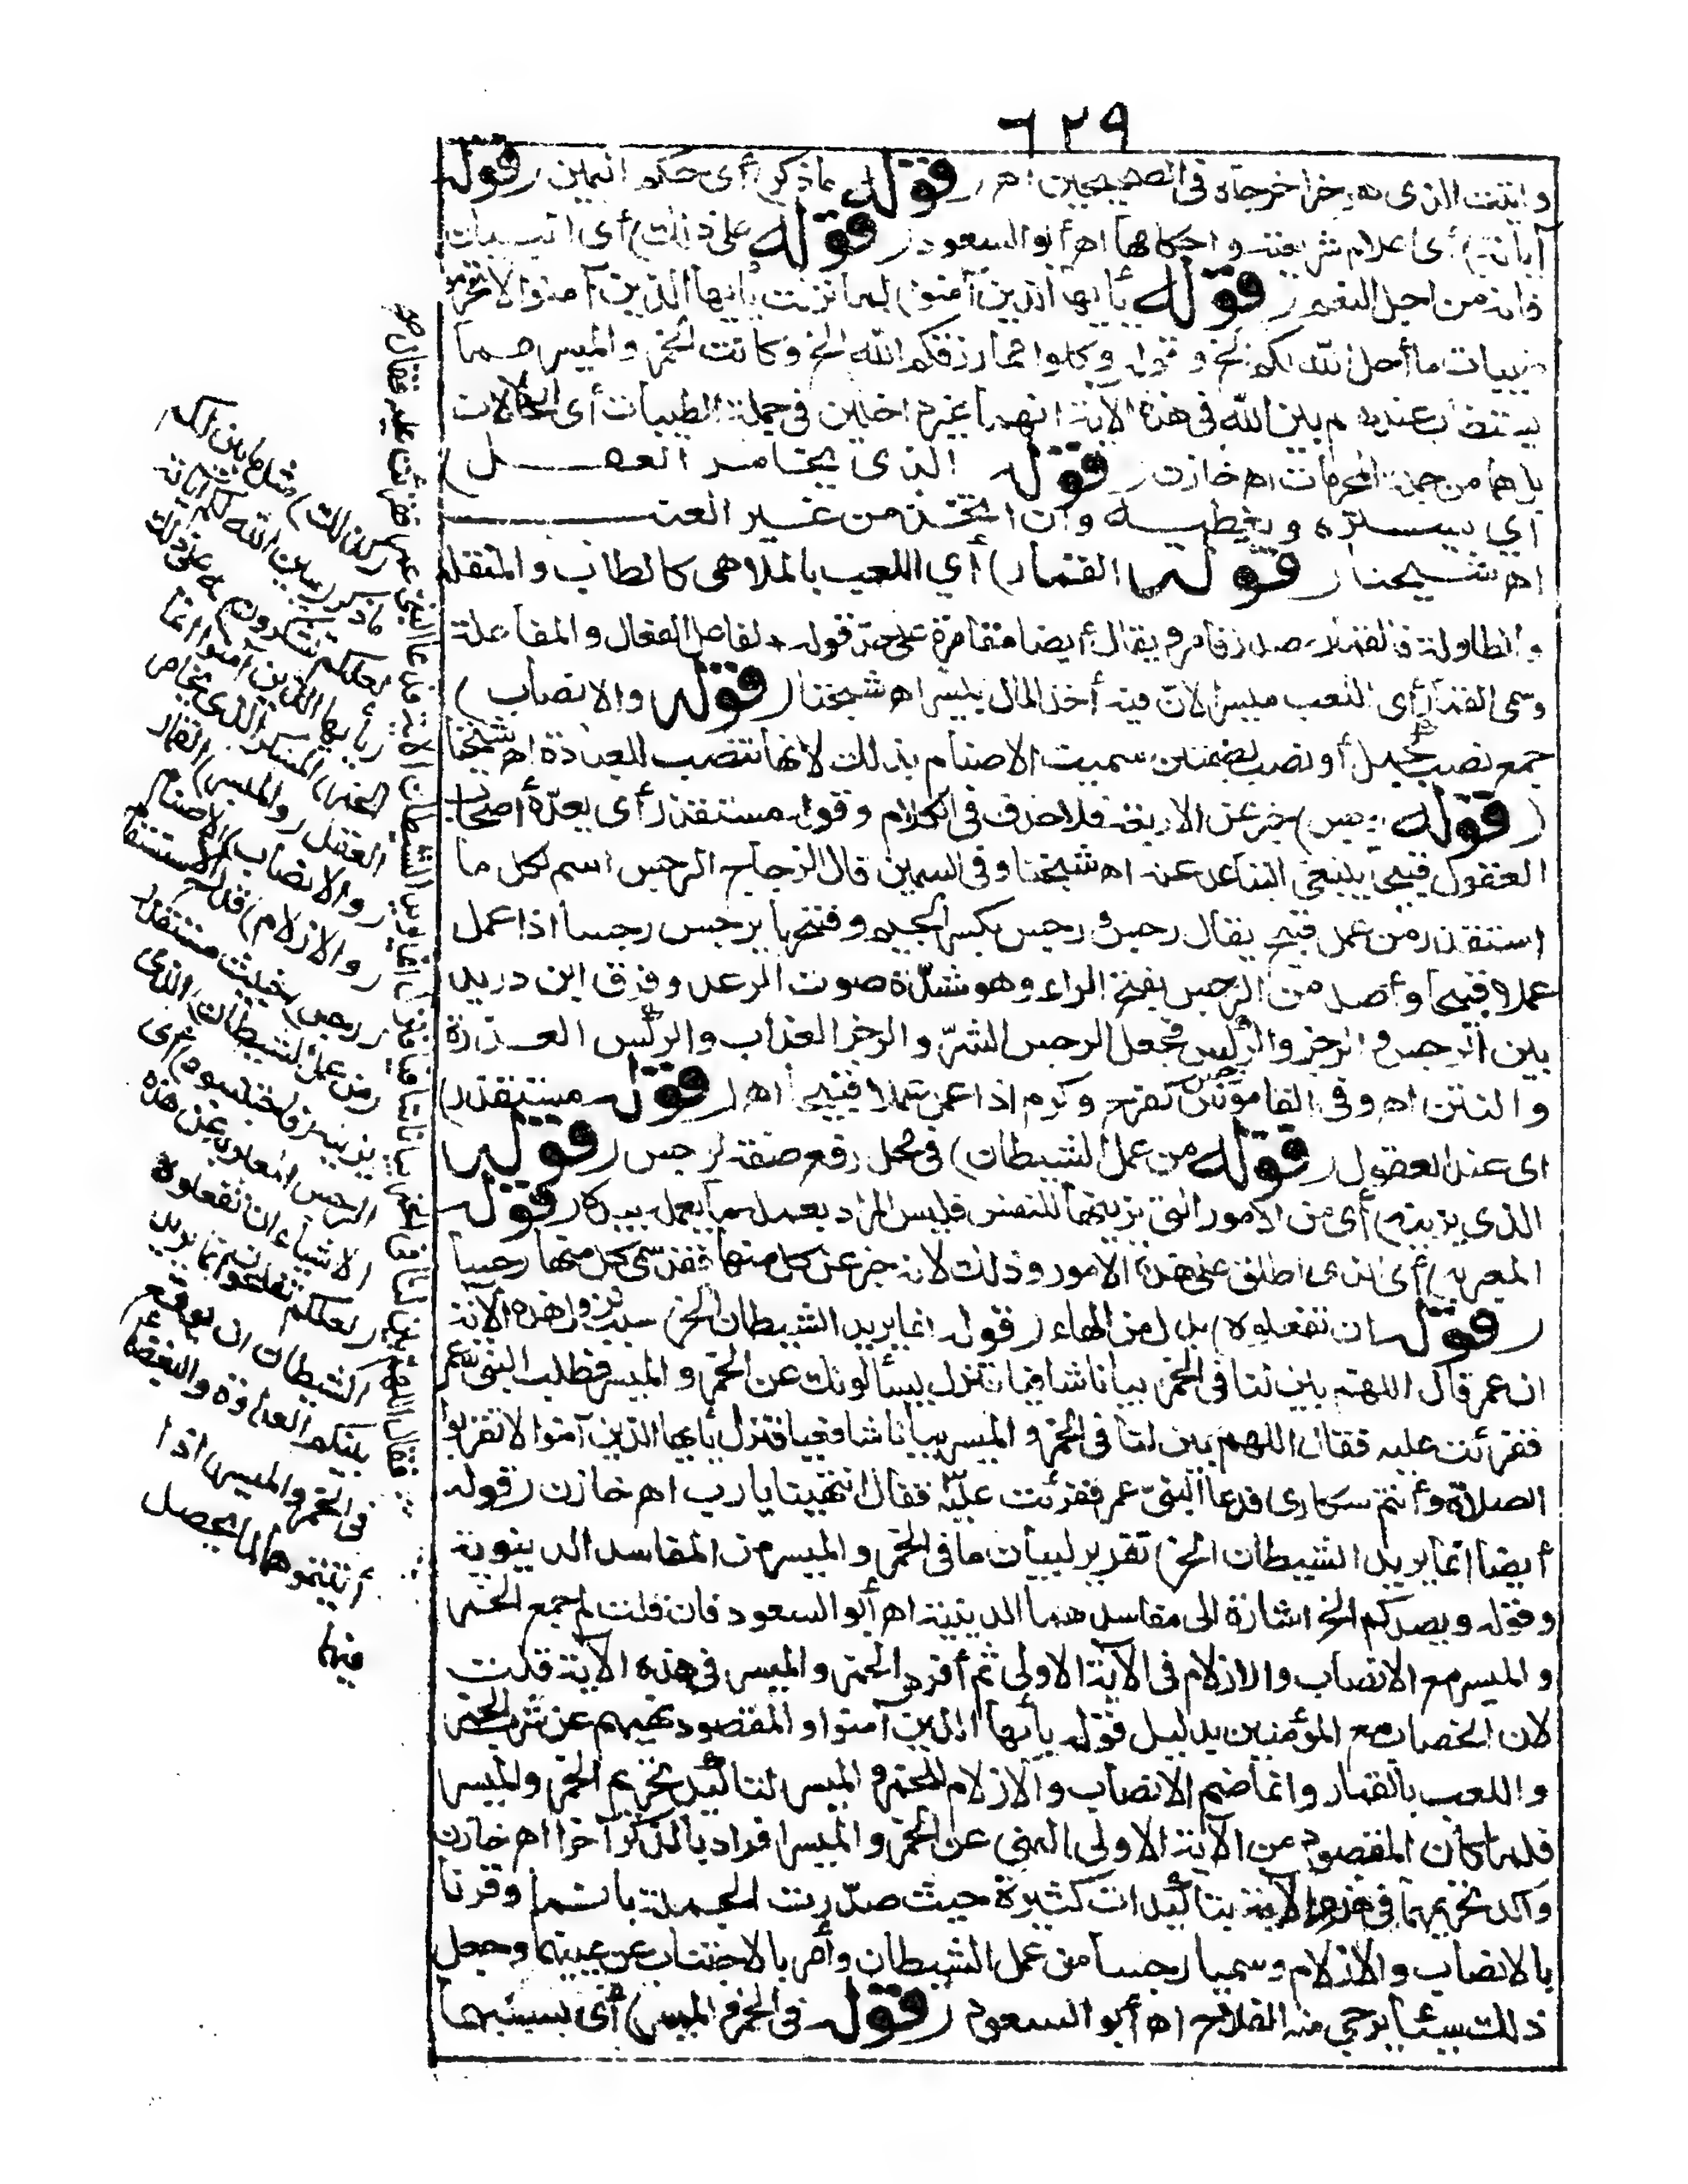 ٦٢٩
وائتت الذى هو خير اخرجاه فى الصحيحين اه (قوله ماذكر) أى حكم اليمين (قوله
آياته) أى اعلام شريعته واحكامها اه أبو السعود (قوله على ذلك) أى التبيان
فانه من اجل النعم (قوله يأيها الذين آمنوا) لما نزلت يأيها الذين آمنوا لا تحرموا
طيبات ما أحل الله لكم الخ وقوله وكلوا مما رزقكم الله الخ وكانت الخمر والميسر مما
يستطاب عندهم بين الله فى هذه الآية انهما غير داخلين فى جملة الطيبات أى الحلالات
بل هما من جملة المحرمات اه خازن (قوله الذى يخامر العقل)
أى يستره ويغطيه وان اتخذ من غير العنب
اه شيخنا (قوله القمار) أى اللعب بالملاهى كالطاب والمنقلة
والطاولة فالقمار مصدر قامر ويقال أيضا مقامرة على حد قوله لفاعل الفعال والمفاعلة
وسمى القمار أى اللعب ميسرا لان فيه أخذ المال بيسر اه شيخنا (قوله والانصاب)
جمع نصب كجبل أو نصب بضمتين سميت الاصنام بذلك لانها تنصب للعبادة اه شيخنا
(قوله رجس) خبر عن الاربعة فلا حذف فى الكلام وقوله مستقذر أى يعده أصحاب
العقول قبيحا ينبغى التباعد عنه اه شيخنا وفى السمين قال الزجاج الرجس اسم لكل ما
استقذر من عمل قبيح يقال رجس ورجس بكسر الجيم وفتحها يرجس رجسا اذا عمل
عملا قبيحا وأصله من الرجس بفتح الراء وهو شدة صوت الرعد وفرق ابن دريد
بين الرجس والرجز والركس فجعل الرجس الشر والرجز العذاب والركس العذرة
والنتن اه وفى القاموس رجس كفرح وكرم اذا عمل عملا قبيحا اه (قوله مستقذر)
اى عند العقول (قوله من عمل الشيطان) فى محل رفع صفة لرجس (قوله
الذى يزينه) أى من الامور التى يزينها للنفس فليس المراد بعمله ما يعمل بيده (قوله
المعبر به) أى الذى اطلق على هذه الامور وذلك لانه خبر عن كل منها فقد سمى كل منها رجسا
(قوله ان تفعلوه) بدل من الهاء (قوله انما يريد الشيطان الخ) سبب نزول هذه الآية
ان عمر قال اللهم بين لنا فى الخمر بيانا شافيا فنزل يسألونك عن الخمر والميسر فطلب النبى عمر
فقرئت عليه فقال اللهم بين لنا فى الخمر والميسر بيانا شافيا فنزل يأيها الذين آمنوا لا تقربوا
الصلاة وأنتم سكارى فدعا النبى عمر فقرئت عليه فقال انتهينا يا رب اه خازن (قوله
أيضا انما يريد الشيطان الخ) تقرير لبيان ما فى الخمر والميسر من المفاسد الدنيوية
وقوله ويصدكم الخ اشارة الى مفاسدهما الدينية اه أبو السعود فان قلت لم جمع الخمر
والميسر مع الانصاب والازلام فى الآية الاولى ثم أفرد الخمر والميسر فى هذه الآية قلت
لان الخطاب مع المؤمنين بدليل قوله يأيها الذين آمنوا والمقصود نهيهم عن شرب الخمر
واللعب بالقمار وانما ضم الانصاب والازلام للخمر والميسر لتأكيد تحريم الخمر والميسر
فلما كان المقصود من الآية الاولى النهى عن الخمر والميسر افردا بالذكر آخرا اه خازن
واكد تحريمهما فى هذه الآية بتأكيدات كثيرة حيث صدرت الجملة بانما وقرنا
بالانصاب والازلام وسميا رجسا من عمل الشيطان وأمر بالاجتناب عن عينهما وجعل
ذلك سببا يرجى منه الفلاح اه أبو السعود (قوله فى الخمر والميسر) أى بسببهما
(كذلك) مثل ما بين لكم
ما ذكر (يبين الله لكم آياته
لعلكم تشكرون) ه على ذلك
(يأيها الذين آمنوا انما
الخمر) المسكر الذى يخامر
العقل (والميسر) القمار
(والانصاب) الاصنام
(والازلام) قداح الاستقسام
(رجس) خبيث مستقذر
(من عمل الشيطان) الذى
يزينه (فاجتنبوه) أى
الرجس المعبر به عن هذه
الاشياء ان تفعلوه
(لعلكم تفلحون انما يريد
الشيطان ان يوقع
بينكم العداوة والبغضاء
فى الخمر والميسر) اذا
أتيتموها لما يحصل
فيها